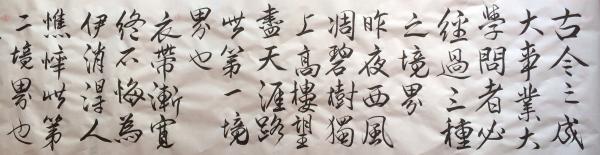 古今之成
大事业大
學問者必
經過三種
之境界
昨夜西風
凋碧樹獨
上高樓望
盡天涯路
此第一境
界也
衣帶漸寬
終不悔為
伊消得人
憔悴此第
二境界也